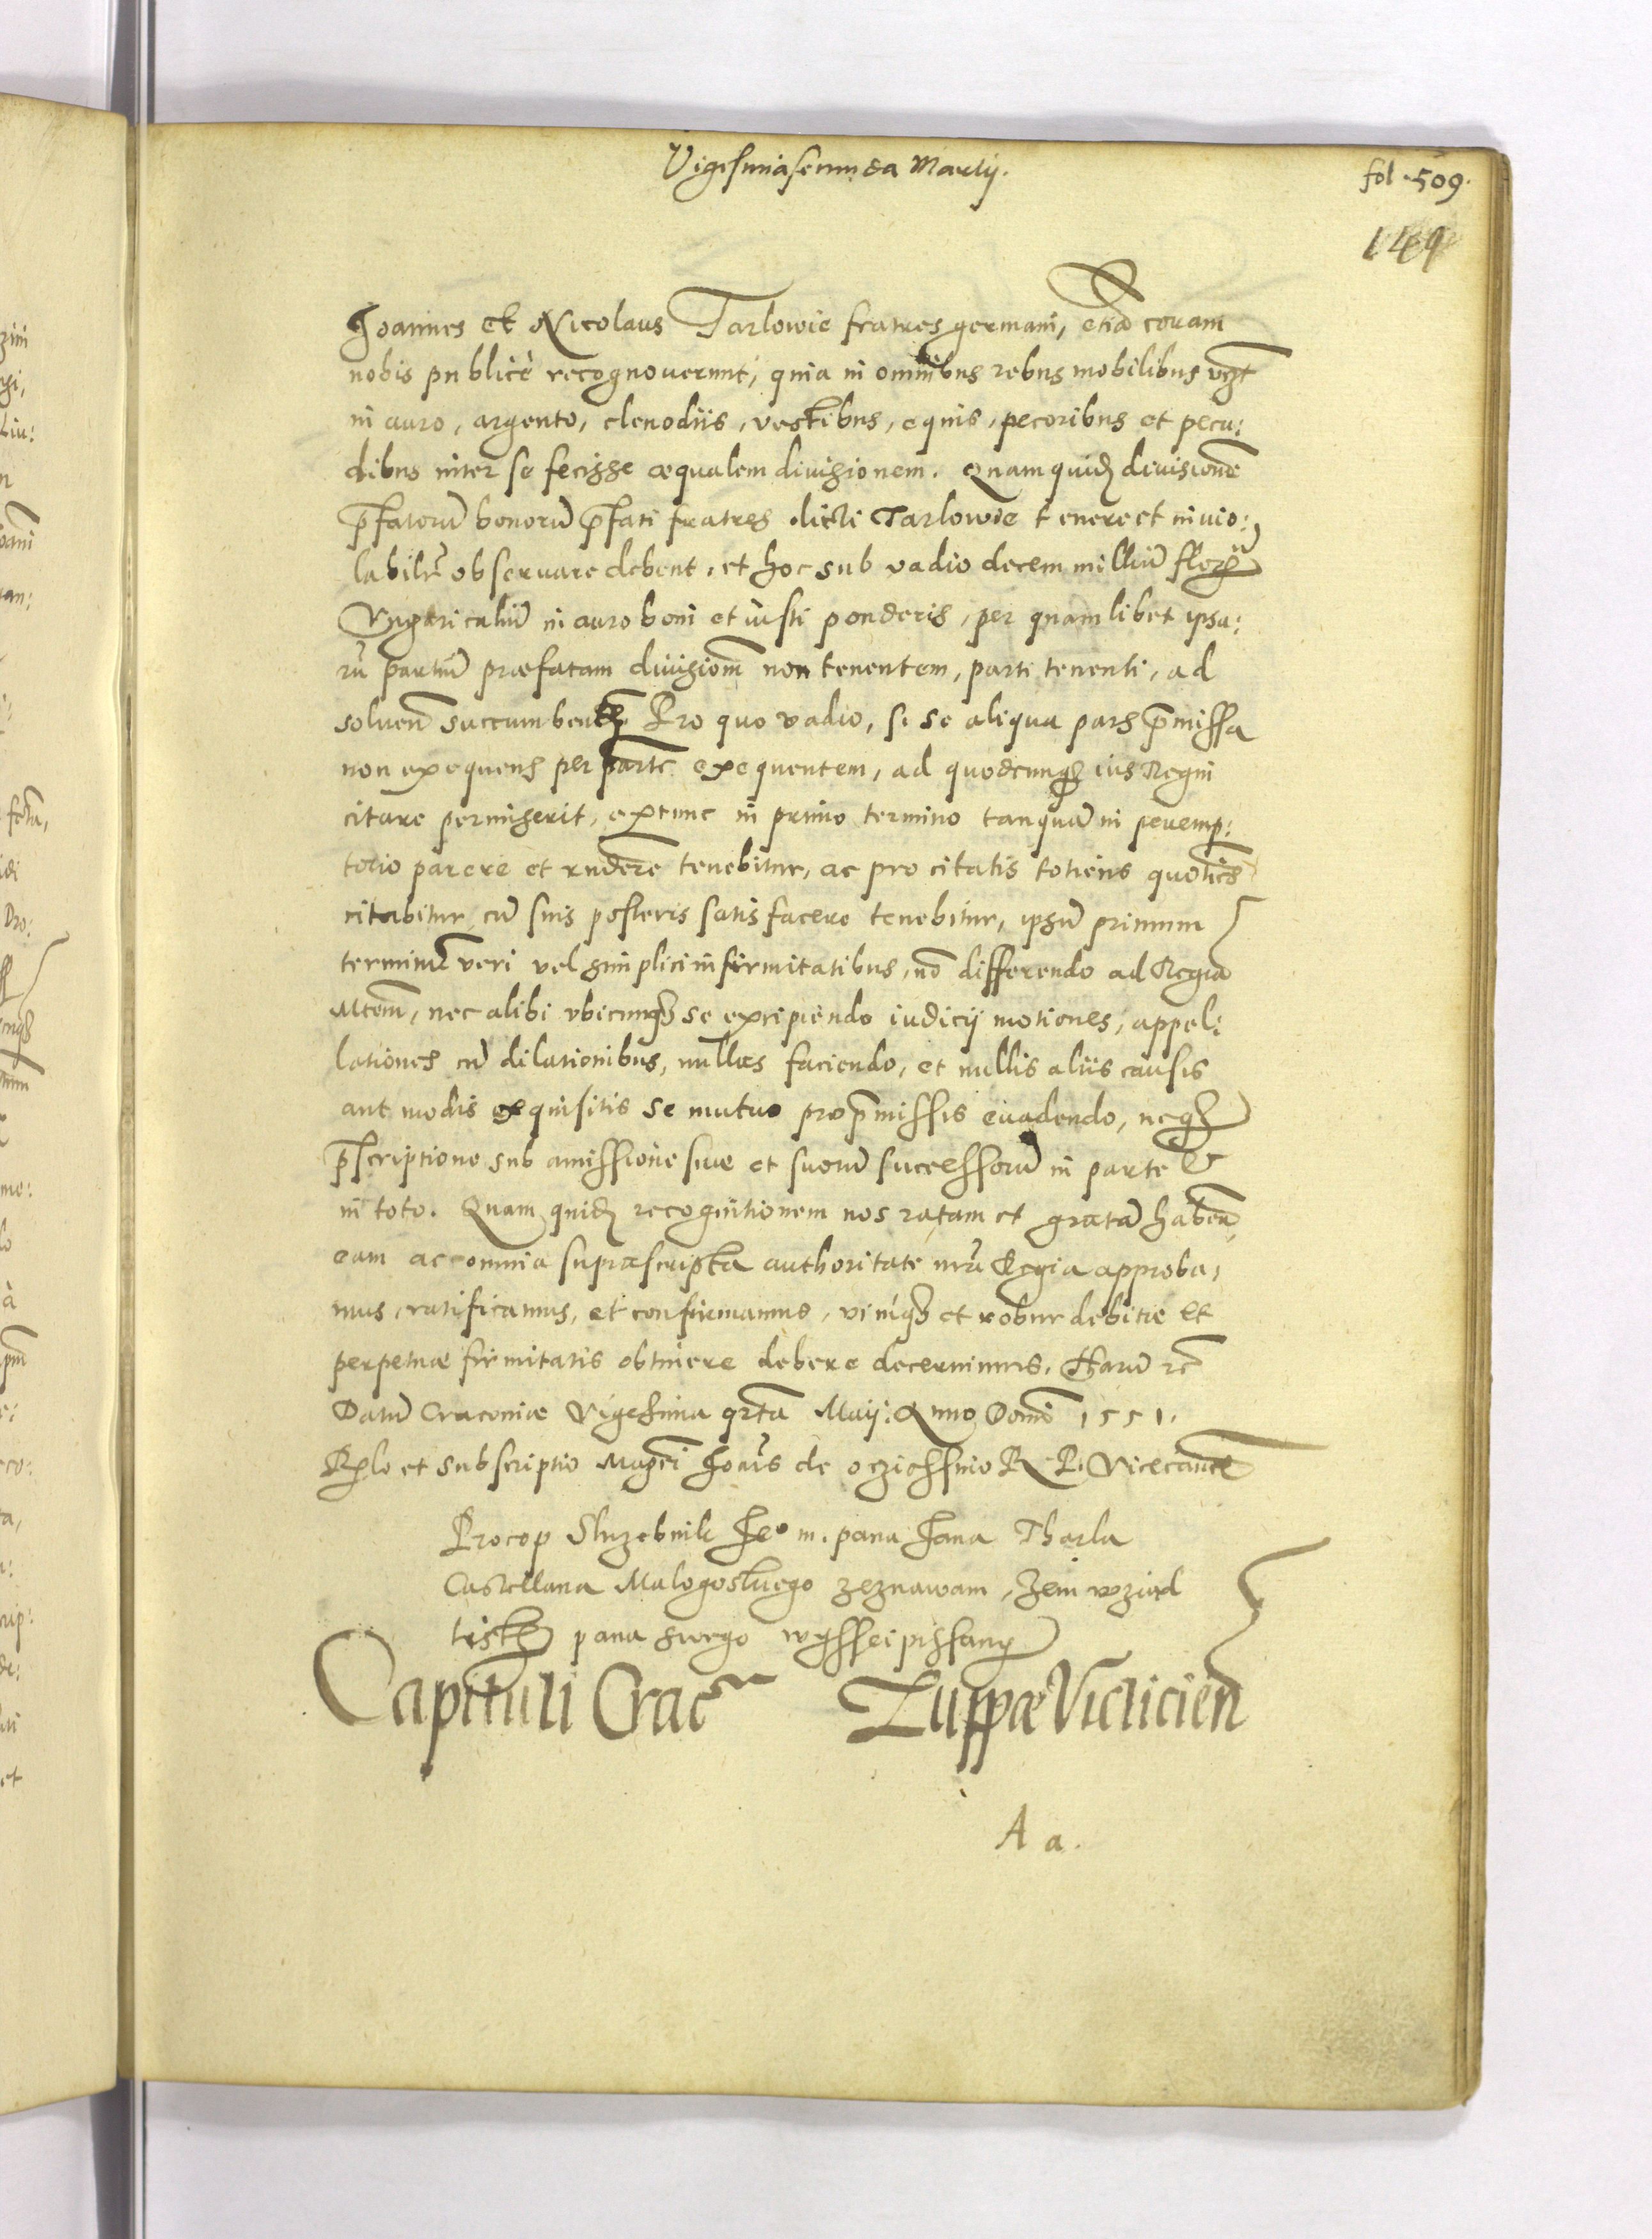 Vigesimasecunda Martij.
fol. 509.
149
Joannes et Nicolaus Tarlowie fratres germani, etiã coram
nobis publicè recognouerunt, quia in omnibus rebus mobilibus vizt
in auro, argento, clenodiis, vestibus, equis, pecoribus et pecu:
dibus inter se fecisse æqualem divisionem. Quam quid divisionẽ
p̄fatorũ bonorũ p̄fati fratres dicti Tarlowie tenere et inuio:
labilr̃ obseruare debent, et hoc sub vadio decem milliũ florẽ
Vngaricaliũ in auro boni et iusti ponderis, per quamlibet ipsa:
rũ partiũ præfatam divisionẽ non tenentem, parti tenenti, ad
soluen̄ succumben̄ Pro quo vadio, si se aliqua pars p̄missa
non exequens per partẽ exequentem, ad quodcunq ius Regni
citare permiserit, extunc in primo termino tanquã in peremp:
torio parere et rñdere tenebitur, ac pro citatis totiens quotiẽs
citabitur cũ suis posteris satisfacere tenebitur, ipsũ primum
terminũ veri vel simplici infirmitatibus, nõ differendo ad Regiã
Mtem̃, nec alibi vbicunq se excipiendo iudicij motiones, appel:
lationes cũ dilationibus, nullas faciendo, et nullis aliis causis
aut modis exquisitis se mutuo pro p̄missis euadendo, neq
p̄scriptione sub amissione siue et suorũ successorũ in parte et
in toto. Quam quid recognitionem nos ratam et gratã habeñ
eam ac omnia suprascripta authoritate nr̃a Regia approba,
mus, ratificamus, et confirmamus, vimq et robur debitæ et
perpetuæ firmitatis obtinere debere decernimus. Harũ rc̃
Datũ Cracoviæ Vigesima qrta Maij: Anno Domĩ 1551.
Rlo et subscriptio Magci Joañis de oczieschino R. P. Vicecancẽ
Procop Sluzebnik Jeo m. pana Jana Tharla
Castellana Malogoskiego zeznawam, Zem wziąl
listh pana swego wyssei pissany
Capituli Crac Zuppæ Vielicien̄
A a.